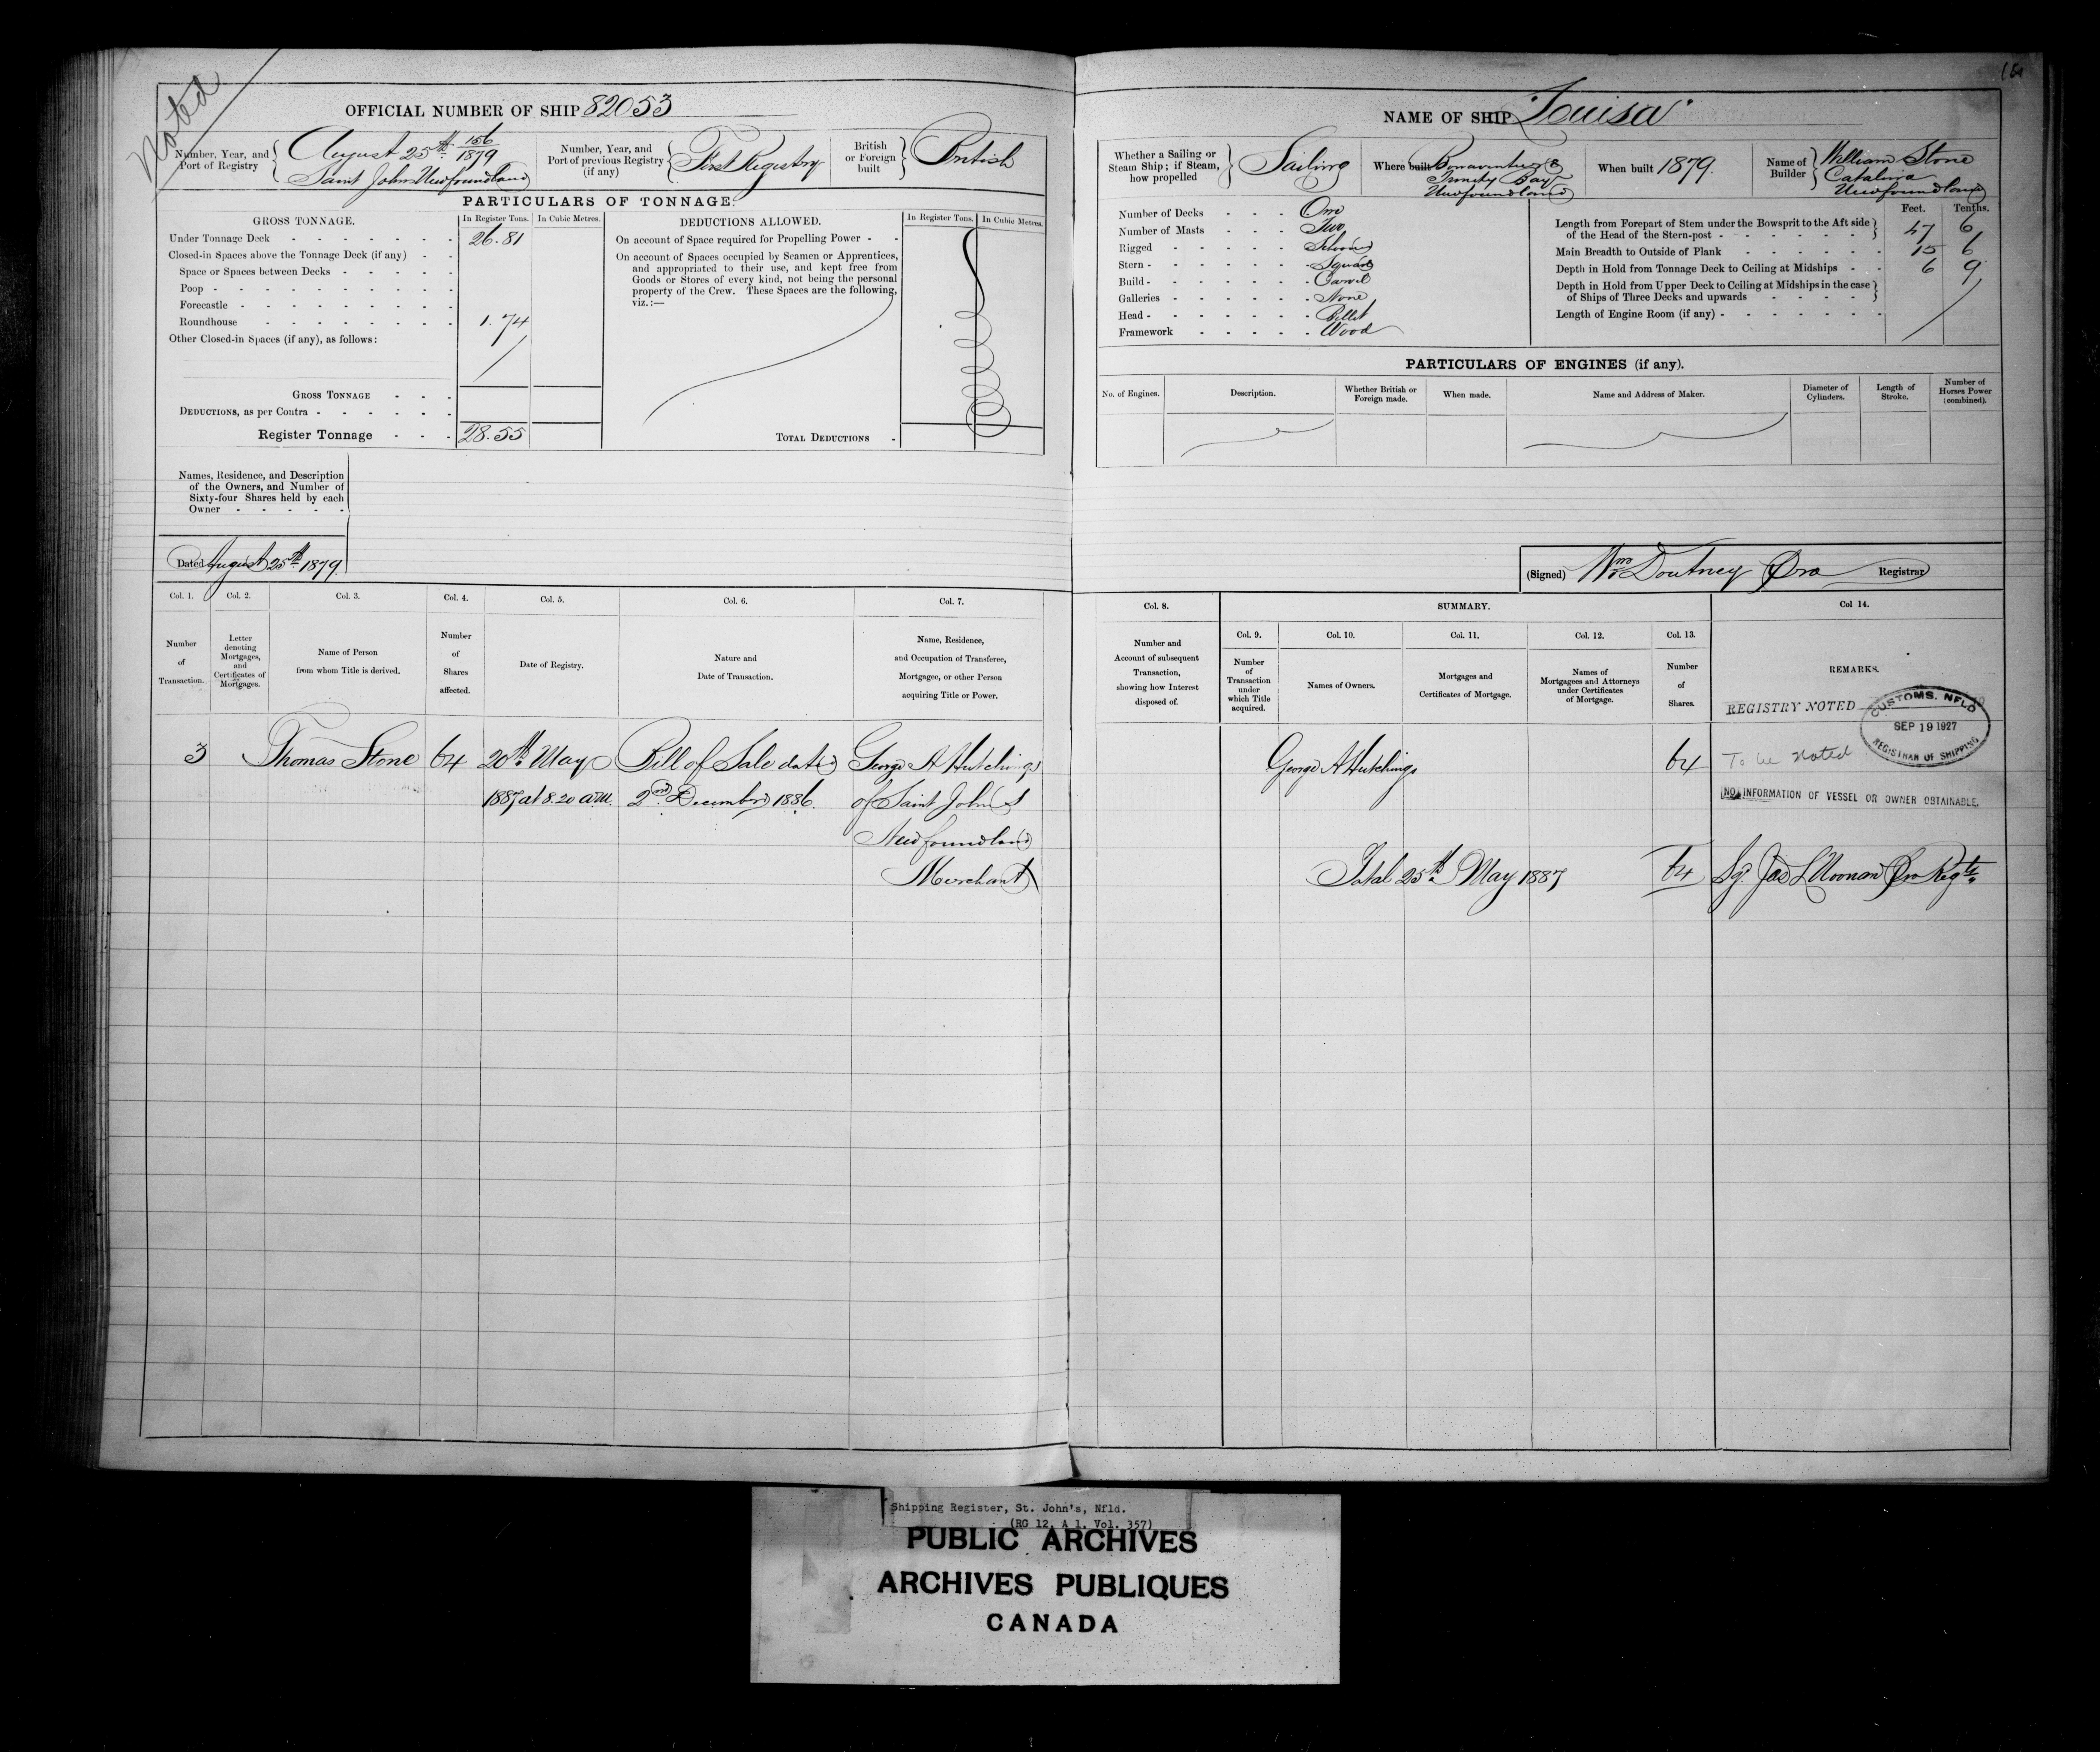 Noted
OFFICIAL NUMBER OF SHIP 82053
Number, Year, and
Port of Registry
August 25th 156/1879
Saint Johns Newfoundland
Number, Year, and
Port of previous Registry
(if any)
First Registry
British
or Foreign
built
British
PARTICULARS OF TONNAGE.
GROSS TONNAGE.
In Register Tons.
In Cubic Metres.
Under Tonnage Deck 26.81
Closed-in Spaces above the Tonnage Deck (if any)
Space or Spaces between Decks
Poop
Forecastle
Roundhouse 1.74
Other Closed-in Spaces (if any), as follows:
GROSS TONNAGE
DEDUCTIONS, as per Contra
Register Tonnage 28.55
DEDUCTIONS ALLOWED.
In Register Tons.
In Cubic Metres.
On account of Space required for Propelling Power
On account of Spaces occupied by Seamen or Apprentices,
and appropriated to their use, and kept free from
Goods or Stores of every kind, not being the personal
property of the Crew. These Spaces are the following,
viz.:—
TOTAL DEDUCTIONS
Names, Residence, and Description
of the Owners, and Number of
Sixty-four Shares held by each
Owner
Dated August 25th 1879.
Col. 1.
Number
of
Transaction.
Col. 2.
Letter
denoting
Mortgages,
and
Certificates of
Mortgages.
Col. 3.
Name of Person
from whom Title is derived.
Col. 4.
Number
of
Shares
affected.
Col. 5.
Date of Registry.
Col. 6.
Nature and
Date of Transaction.
Col. 7.
Name, Residence,
and Occupation of Transferee,
Mortgagee, or other Person
acquiring Title or Power.
3 Thomas Stone 64 20th May Bill of Sale dated George A Hutchings
1887 at 8.20 a.m. 2nd December 1886. of Saint John's
Newfoundland
Merchant
NAME OF SHIP "Louisa"
Whether a Sailing or
Steam Ship; if Steam,
how propelled
Sailing
Where built
Bonaventure
Trinity Bay
Newfoundland
When built 1879.
Name of
Builder
William Stone
Catalina
Newfoundland
Number of Decks One
Number of Masts Two
Rigged Schooner
Stern Square
Build Carvel
Galleries None
Head Billet
Framework Wood
Feet. Tenths.
Length from Forepart of Stem under the Bowsprit to the Aft side
of the Head of the Stern-post 47 6
Main Breadth to Outside of Plank 15 6
Depth in Hold from Tonnage Deck to Ceiling at Midships 6 9
Depth in Hold from Upper Deck to Ceiling at Midships in the case
of Ships of Three Decks and upwards
Length of Engine Room (if any)
PARTICULARS OF ENGINES (if any).
No. of Engines.
Description.
Whether British or
Foreign made.
When made.
Name and Address of Maker.
Diameter of
Cylinders.
Length of
Stroke.
Number of
Horses Power
(combined).
(Signed) Wm Doutney Pro Registrar
Col. 8.
Number and
Account of subsequent
Transaction,
showing how Interest
disposed of.
SUMMARY.
Col. 9.
Number
of
Transaction
under
which Title
acquired.
Col. 10.
Names of Owners.
Col. 11.
Mortgages and
Certificates of Mortgage.
Col. 12.
Names of
Mortgagees and Attorneys
under Certificates
of Mortgage.
Col. 13.
Number
of
Shares.
Col 14.
REMARKS.
REGISTRY NOTED
CUSTOMS, NFLD
SEP 19 1927
REGISTRAR OF SHIPPING
George A Hutchings 64 To be Noted
NO INFORMATION OF VESSEL OR OWNER OBTAINABLE.
Total 25th May 1887 64 Sg. Jas L Noonan Pro Regtr
Shipping Register, St. John's, Nfld.
(RG 12, A 1, Vol. 357)
PUBLIC ARCHIVES
ARCHIVES PUBLIQUES
CANADA